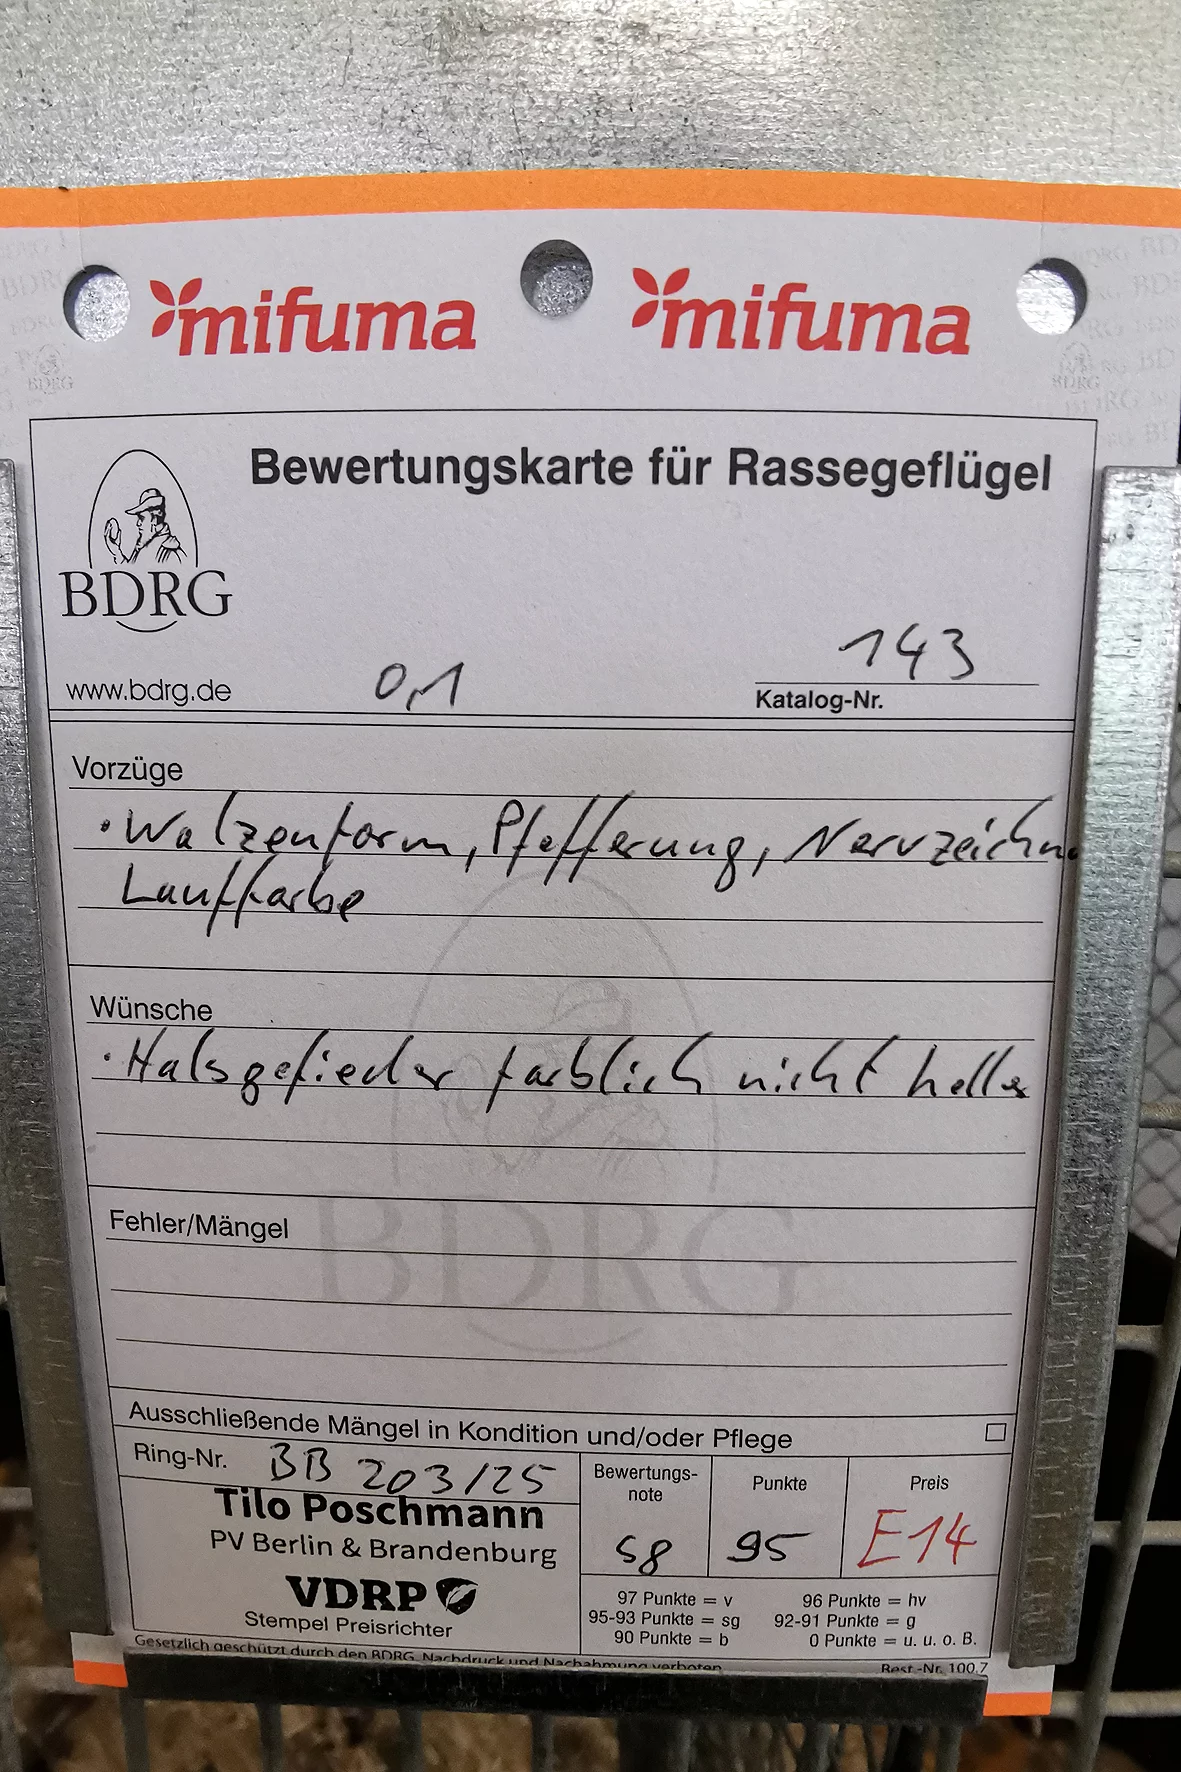 mifuma mifuma
Bewertungskarte für Rassegeflügel
BDRG
www.bdrg.de
0,1
143
Katalog-Nr.
Vorzüge
• Walzenform, Pfefferung, Nervzeichn
Lauffarbe
Wünsche
• Halsgefieder farblich nicht heller
BDRG
Fehler/Mängel
Ausschließende Mängel in Kondition und/oder Pflege
Ring-Nr. BB 203/25
Tilo Poschmann
PV Berlin & Brandenburg
VDRP
Stempel Preisrichter
Bewertungs-
note
sg
Punkte
95
Preis
E14
97 Punkte = v 96 Punkte = hv
95-93 Punkte = sg 92-91 Punkte = g
90 Punkte = b 0 Punkte = u. u. o. B.
Gesetzlich geschützt durch den BDRG. Nachdruck und Nachahmung verboten
Best.-Nr. 100.7